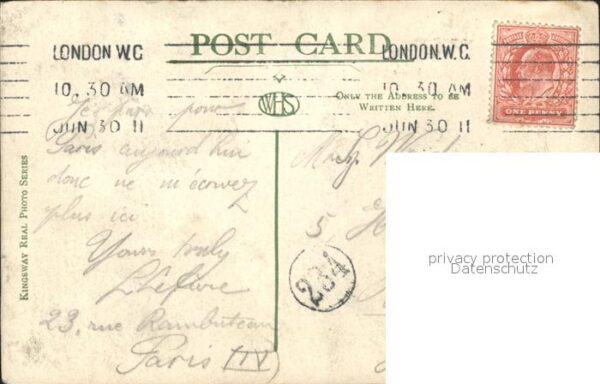 LONDON. W.C
10. 30 AM
JUN 30 11
POST CARD
LONDON. W.C.
10. 30 AM
JUN 30 11
WHS
ONLY THE ADDRESS TO BE
WRITTEN HERE.
POSTAGE REVENUE
ONE PENNY
KINGSWAY REAL PHOTO SERIES
Je pars pour
Paris aujourd'hui
donc ne m'écrivez
plus ici
Yours truly
L Lefèvre
23, rue Rambuteau
Paris (IV)
5
234
privacy protection
Datenschutz